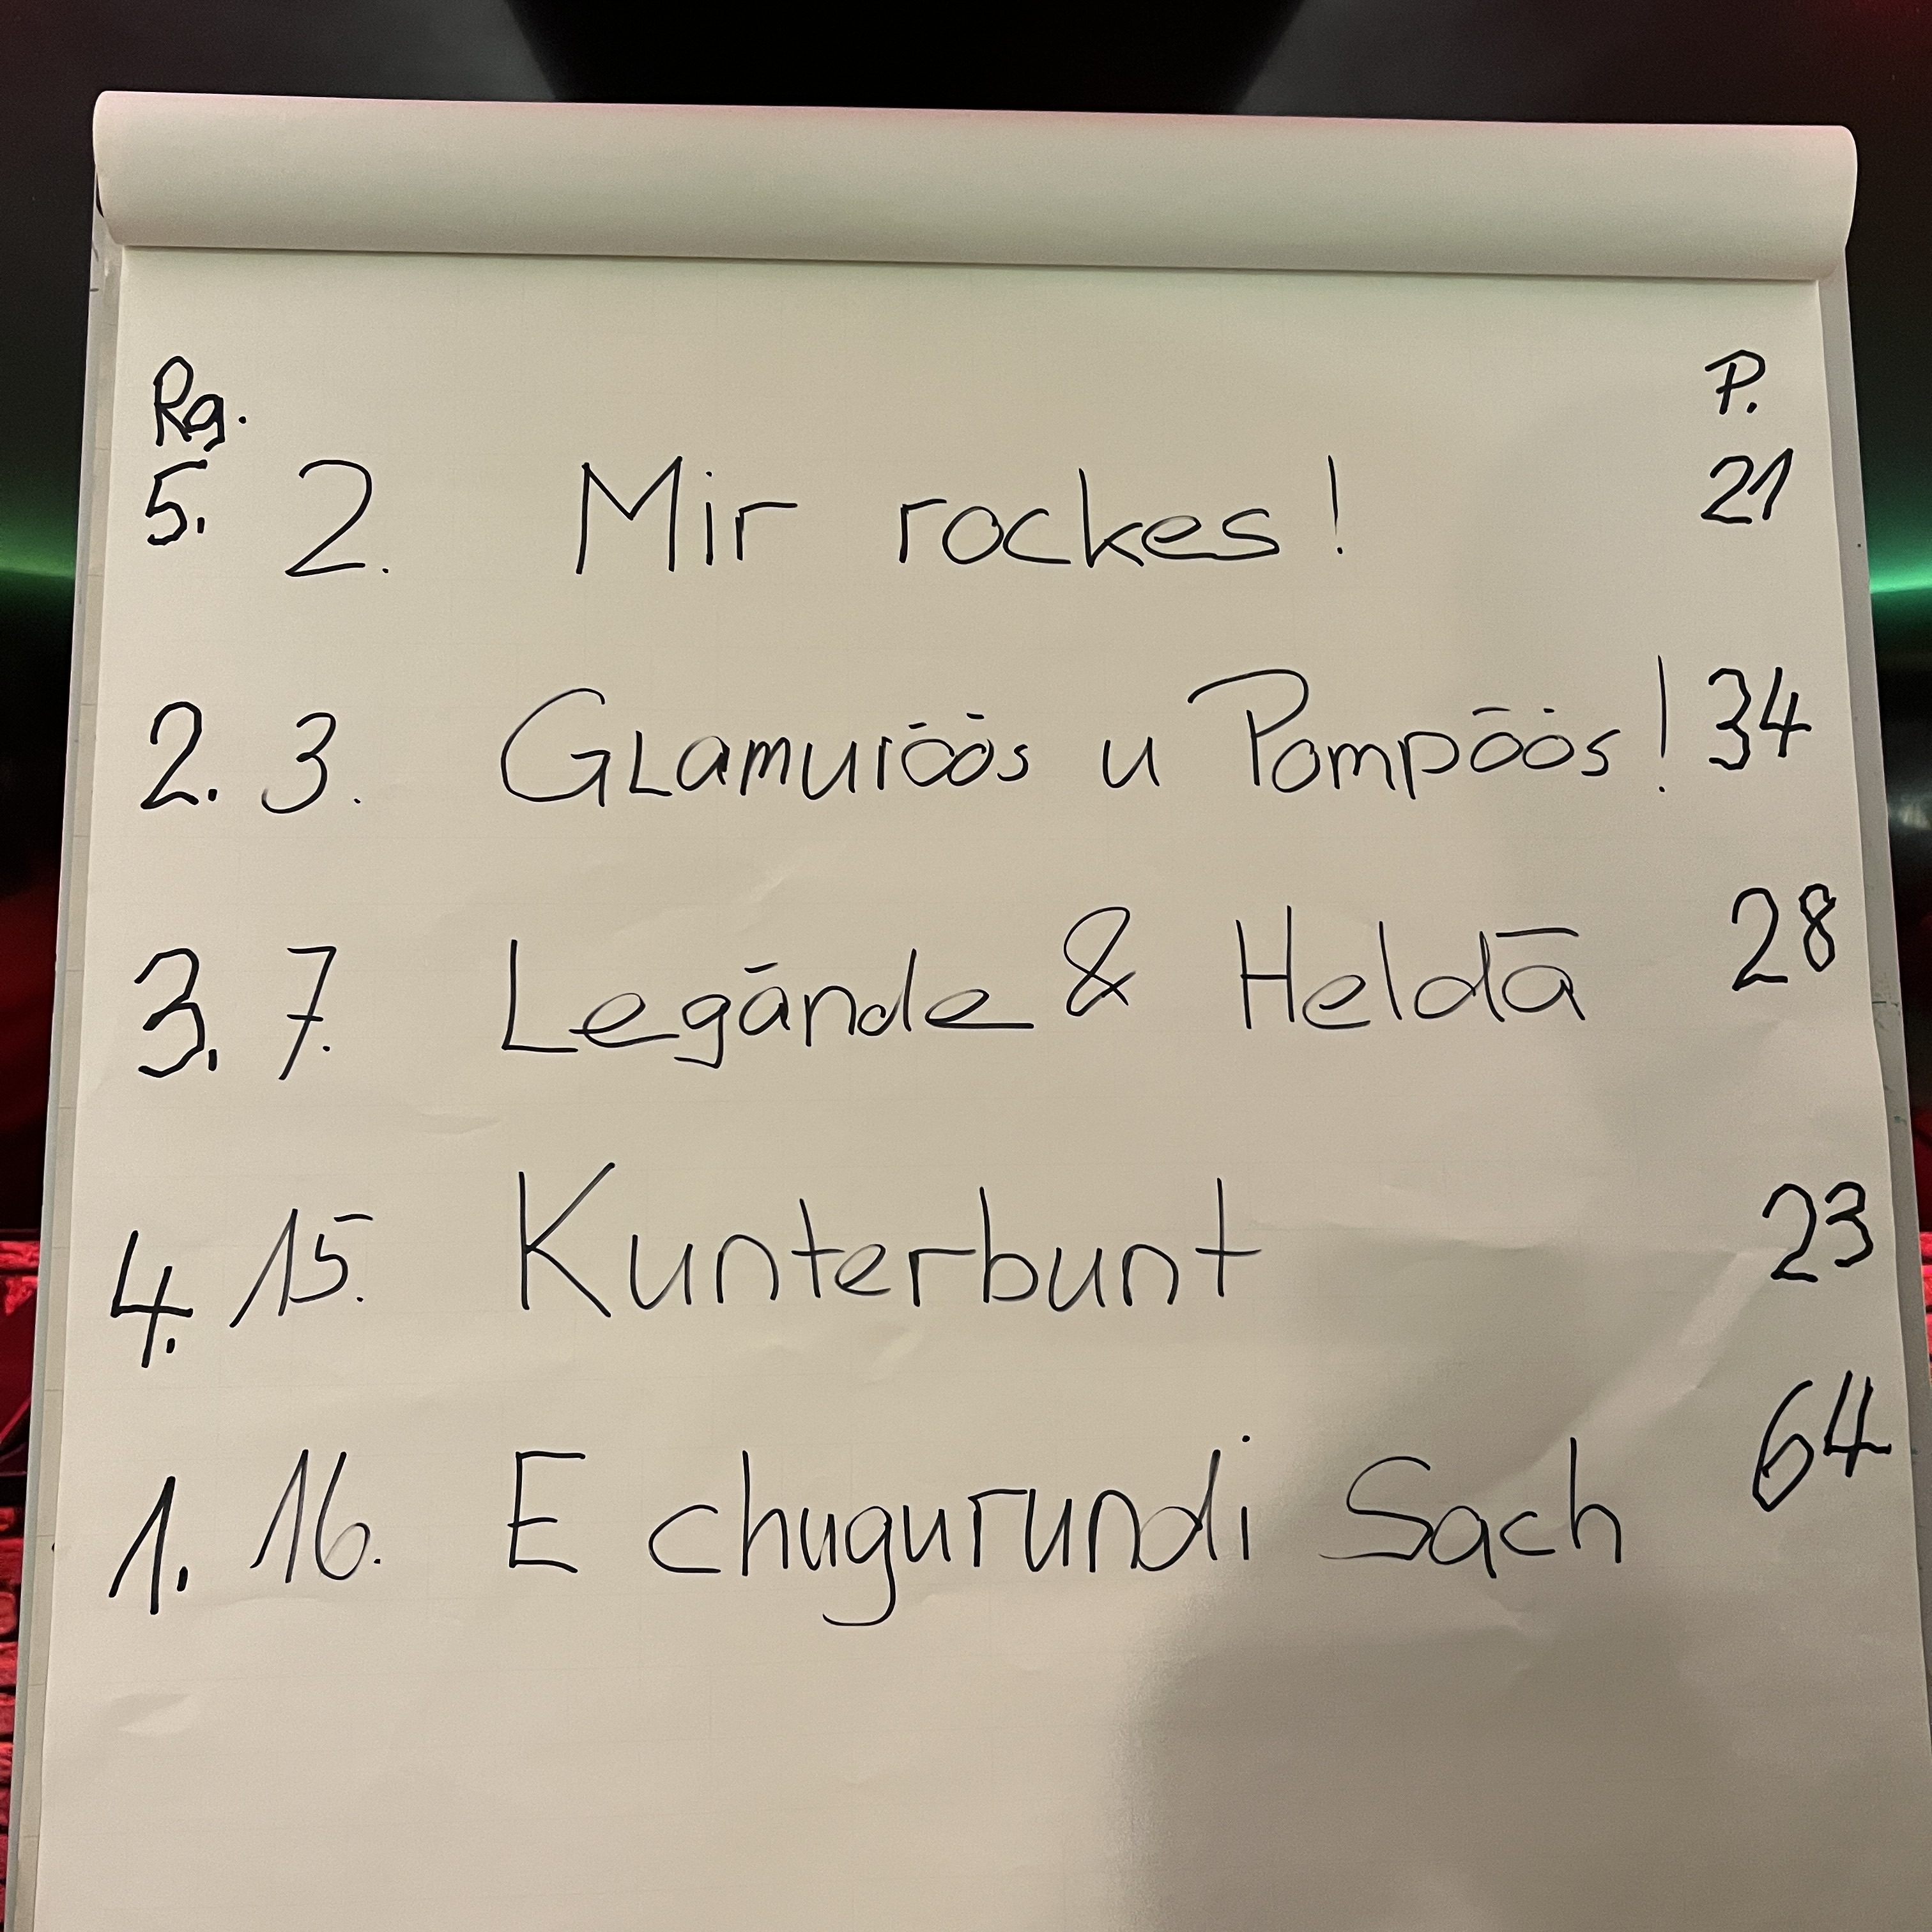 Rg. P.
5. 2. Mir rockes! 21
2. 3. Glamuröös u Pompöös! 34
3. 7. Legände & Heldä 28
4. 15. Kunterbunt 23
1. 16. E chugurundi Sach 64